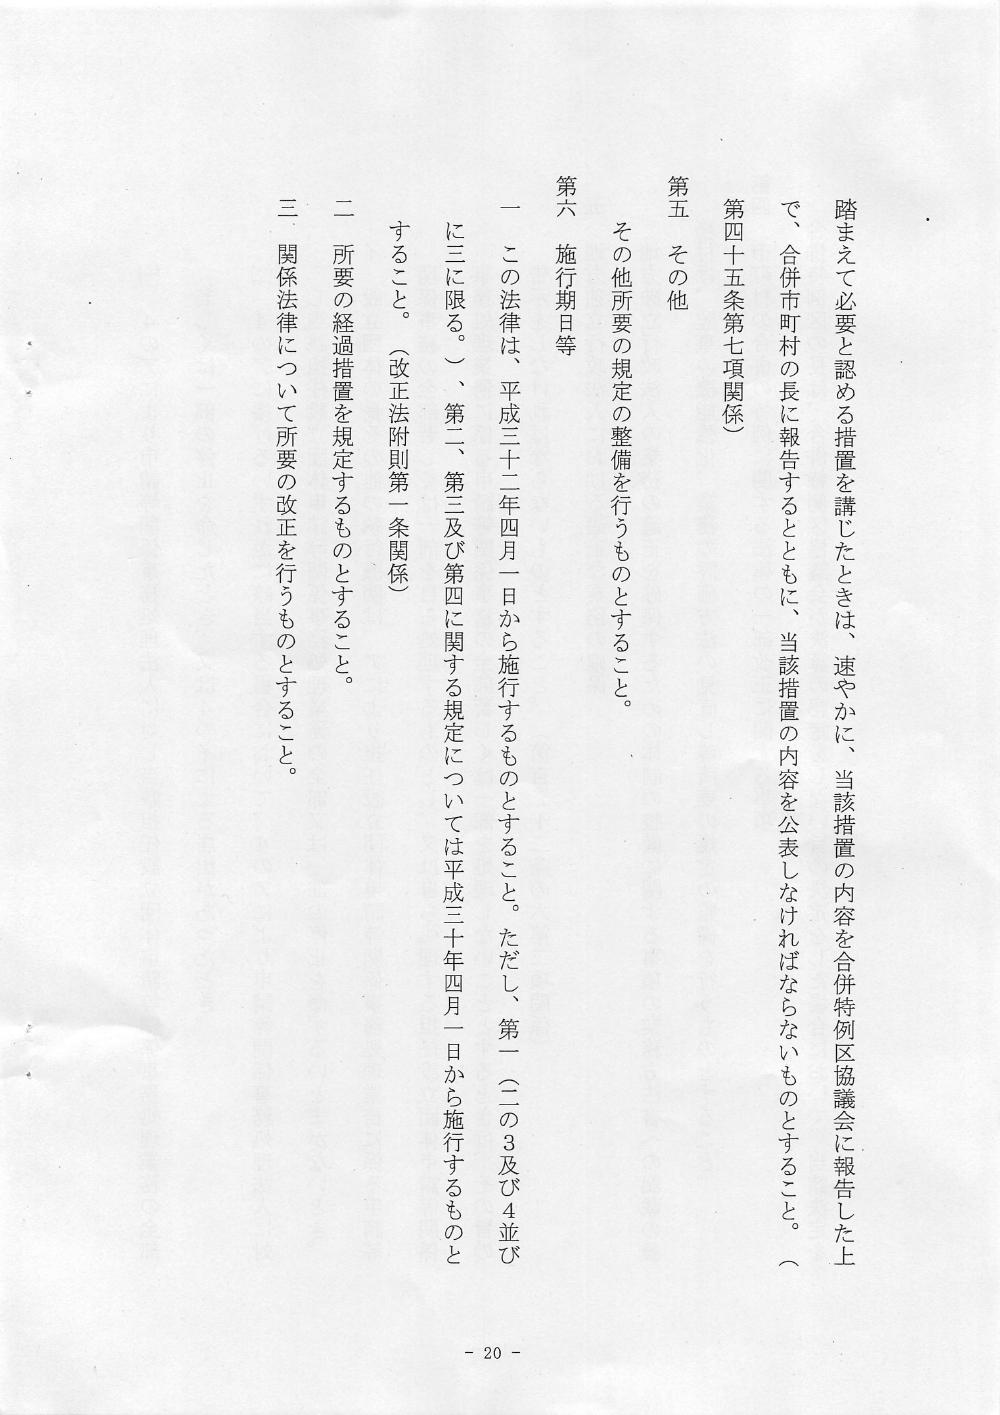 踏まえて必要と認める措置を講じたときは、速やかに、当該措置の内容を合併特例区協議会に報告した上
で、合併市町村の長に報告するとともに、当該措置の内容を公表しなければならないものとすること。（
第四十五条第七項関係）
第五　その他
その他所要の規定の整備を行うものとすること。
第六　施行期日等
一　この法律は、平成三十二年四月一日から施行するものとすること。ただし、第一（二の３及び４並び
に三に限る。）、第二、第三及び第四に関する規定については平成三十年四月一日から施行するものと
すること。（改正法附則第一条関係）
二　所要の経過措置を規定するものとすること。
三　関係法律について所要の改正を行うものとすること。
- 20 -